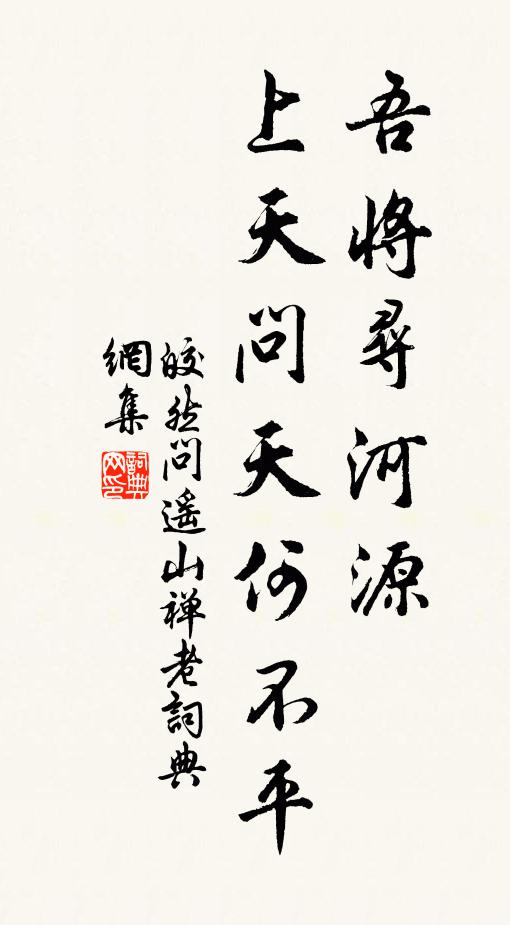 吾將尋河源
上天問天何不平
皎然问遥山禅老詞典
網集
詞典
网印